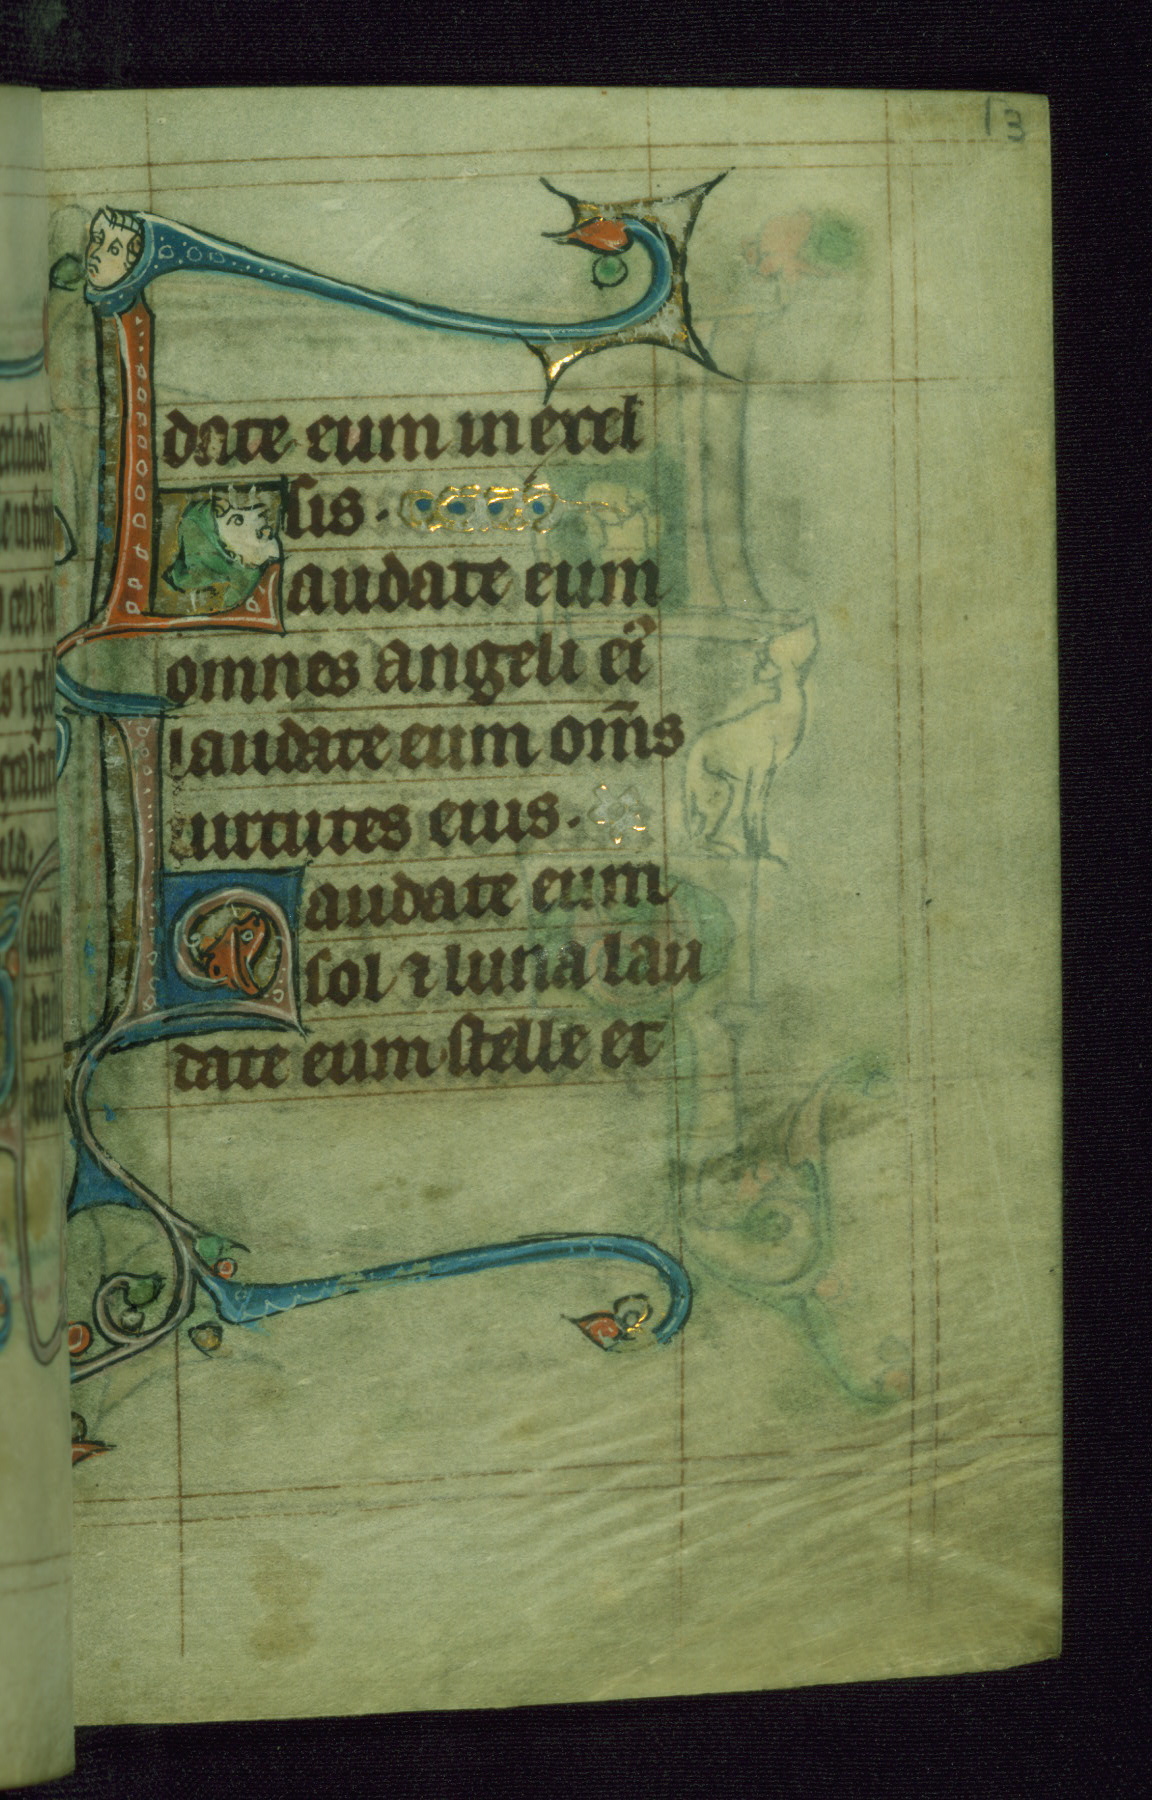 13
date eum in excel
sis ·
Laudate eum
omnes angeli eiꝰ
laudate eum om̅s
uirtutes eius ·
Laudate eum
sol ⁊ luna lau
date eum stelle et